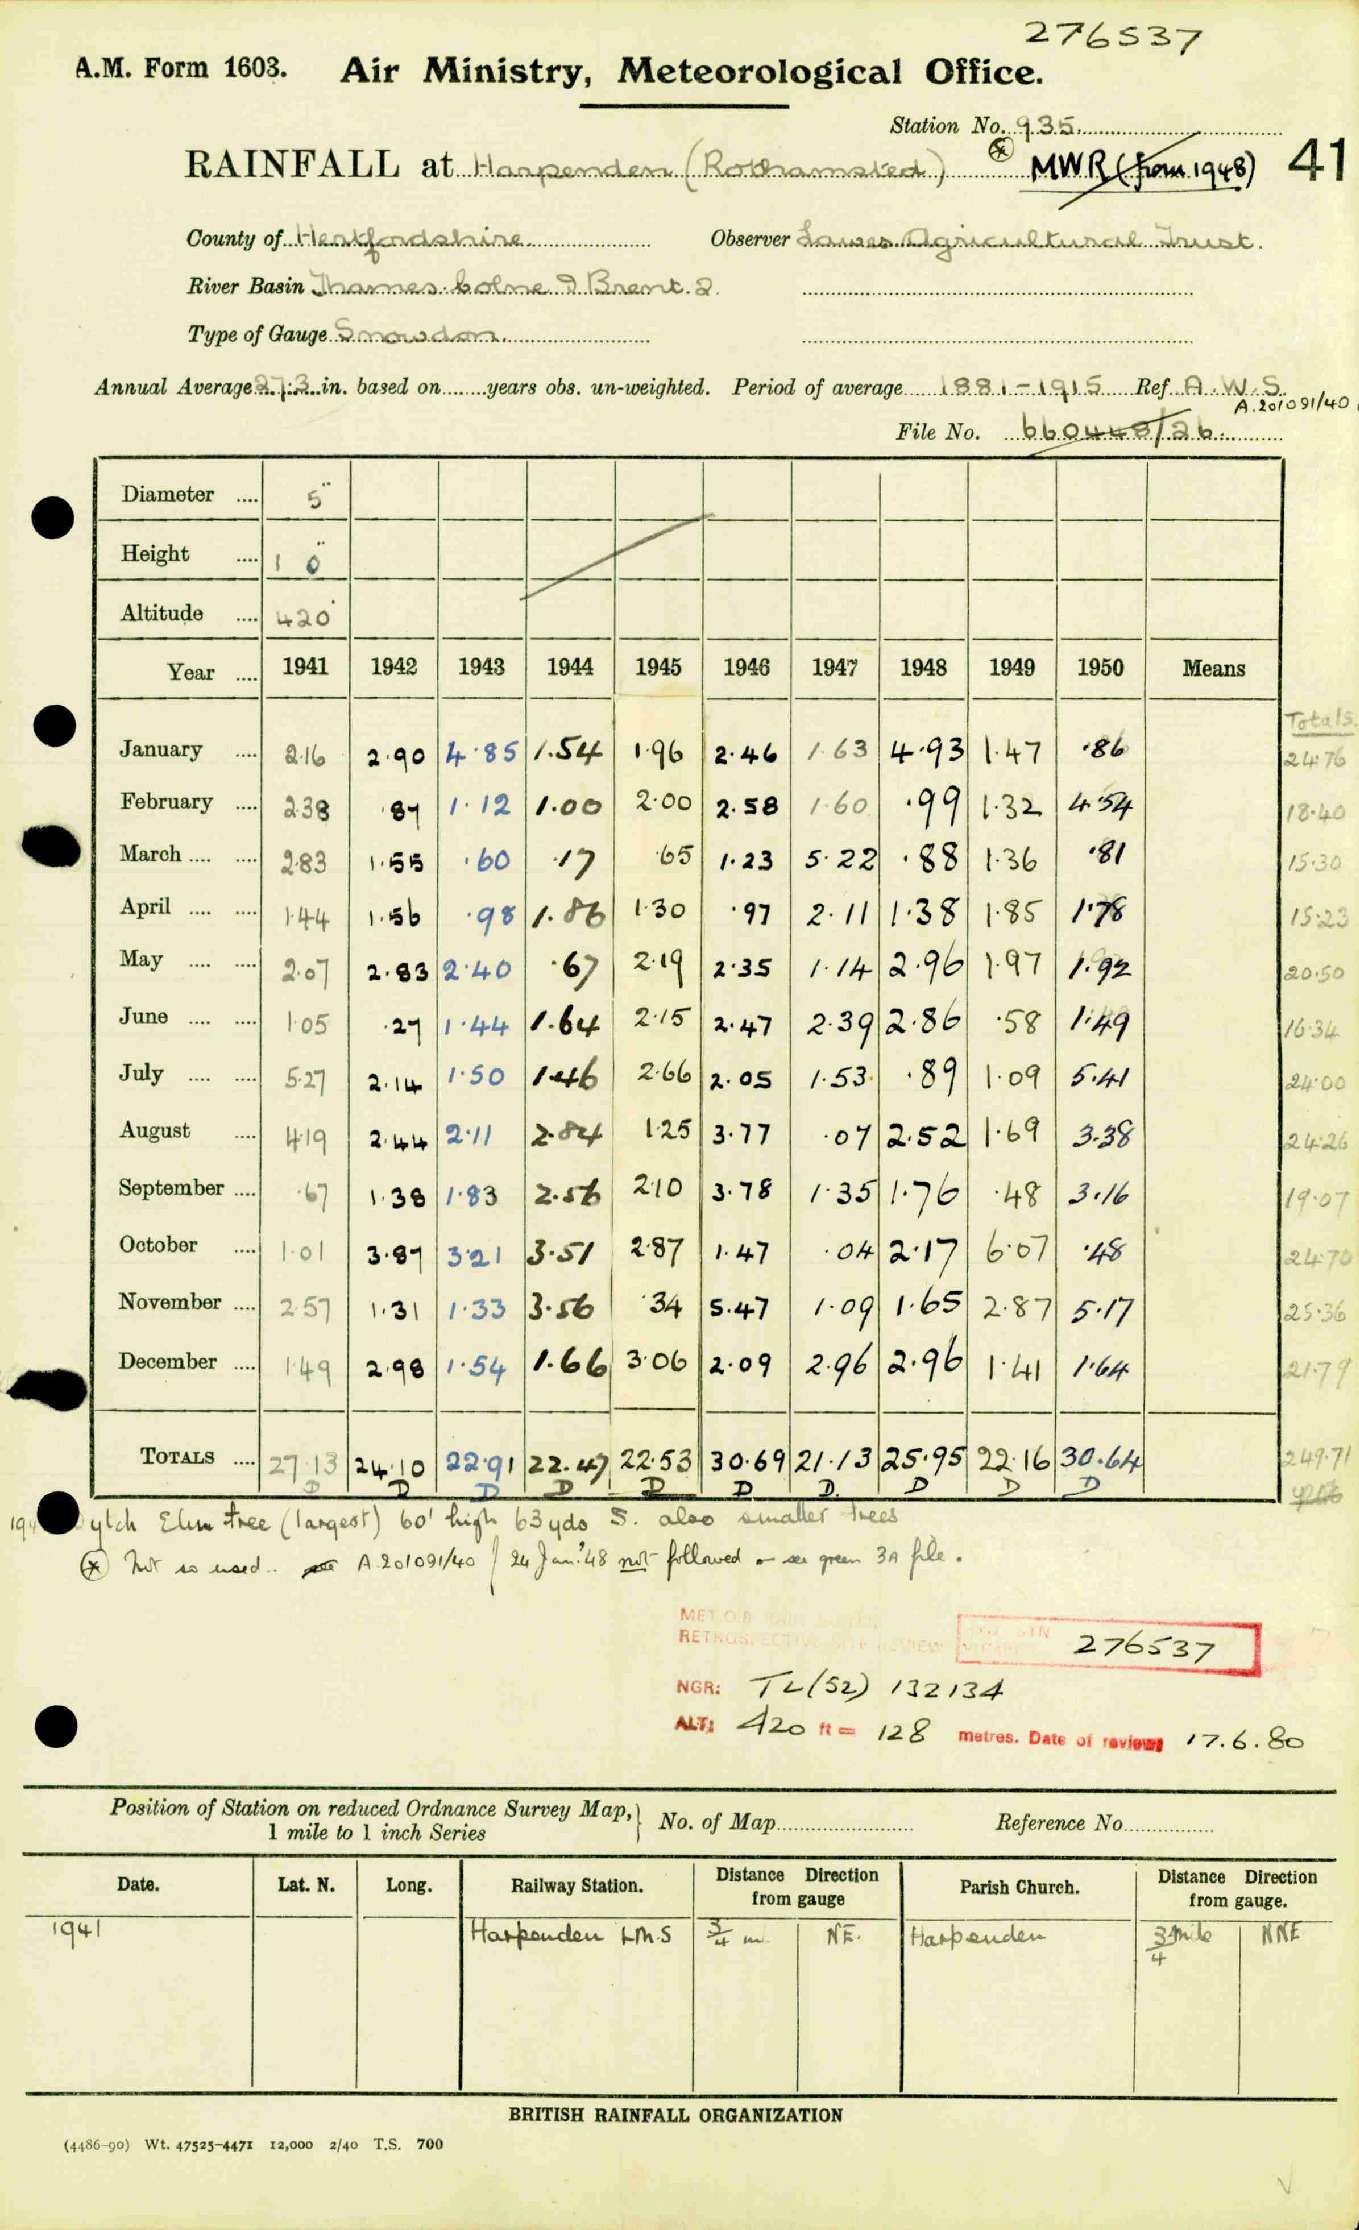 276537
A.M. Form 1603. Air Ministry, Meteorological Office.
Station No. 935
RAINFALL at Harpenden (Rothamsted) ⊛ MWR (from 1948) 41
County of Hertfordshire Observer Lawes Agricultural Trust.
River Basin Thames. Colne & Brent. 2.
Type of Gauge Snowdon
Annual Average 27.3 in. based on years obs. un-weighted. Period of average 1881-1915 Ref A.W.S.
A.201091/40
File No. 660448/26
Diameter .... 5"
Height .... 1' 0"
Altitude .... 420'
Year .... 1941 1942 1943 1944 1945 1946 1947 1948 1949 1950 Means
Totals.
January .... 2.16 2.90 4.85 1.54 1.96 2.46 1.63 4.93 1.47 .86 24.76
February .... 2.38 .87 1.12 1.00 2.00 2.58 1.60 .99 1.32 4.54 18.40
March .... .... 2.83 1.55 .60 .17 .65 1.23 5.22 .88 1.36 .81 15.30
April .... .... 1.44 1.56 .98 1.86 1.30 .97 2.11 1.38 1.85 1.78 15.23
May .... .... 2.07 2.83 2.40 .67 2.19 2.35 1.14 2.96 1.97 1.92 20.50
June .... .... 1.05 .27 1.44 1.64 2.15 2.47 2.39 2.86 .58 1.49 16.34
July .... .... 5.27 2.14 1.50 1.46 2.66 2.05 1.53 .89 1.09 5.41 24.00
August .... 4.19 2.44 2.11 2.84 1.25 3.77 .07 2.52 1.69 3.38 24.26
September .... .67 1.38 1.83 2.56 2.10 3.78 1.35 1.76 .48 3.16 19.07
October .... 1.01 3.87 3.21 3.51 2.87 1.47 .04 2.17 6.07 .48 24.70
November .... 2.57 1.31 1.33 3.56 .34 5.47 1.09 1.65 2.87 5.17 25.36
December .... 1.49 2.98 1.54 1.66 3.06 2.09 2.96 2.96 1.41 1.64 21.79
TOTALS .... 27.13 24.10 22.91 22.47 22.53 30.69 21.13 25.95 22.16 30.64 249.71
D D D D D D D. D D D
Elm tree (largest) 60' high 63 yds S. also smaller trees
⊛ Not so used.. A.201091/40 24 Jan. '48 not followed - see green 3A file.
MET.O.8
RETROSPECTIVE SITE REVIEW STN 276537
NGR: TL(52) 132134
ALT: 420 ft = 128 metres. Date of review 17.6.80
Position of Station on reduced Ordnance Survey Map,
1 mile to 1 inch Series
No. of Map Reference No.
Date. Lat. N. Long. Railway Station. Distance Direction from gauge Parish Church. Distance Direction from gauge.
1941 Harpenden L.M.S 3/4 m NE. Harpenden 3/4 mile NNE
BRITISH RAINFALL ORGANIZATION
(4486-90) Wt. 47525-4471 12,000 2/40 T.S. 700